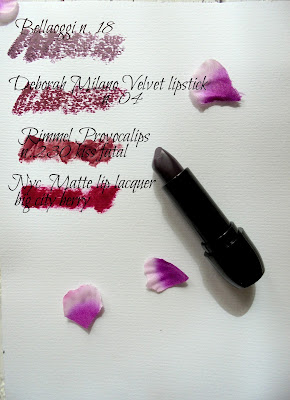 Bellaoggi n. 18
Deborah Milano Velvet lipstick
n. 04
Rimmel Provocalips
n. 230 kiss fatal
Nyc Matte lip lacquer
big city berry